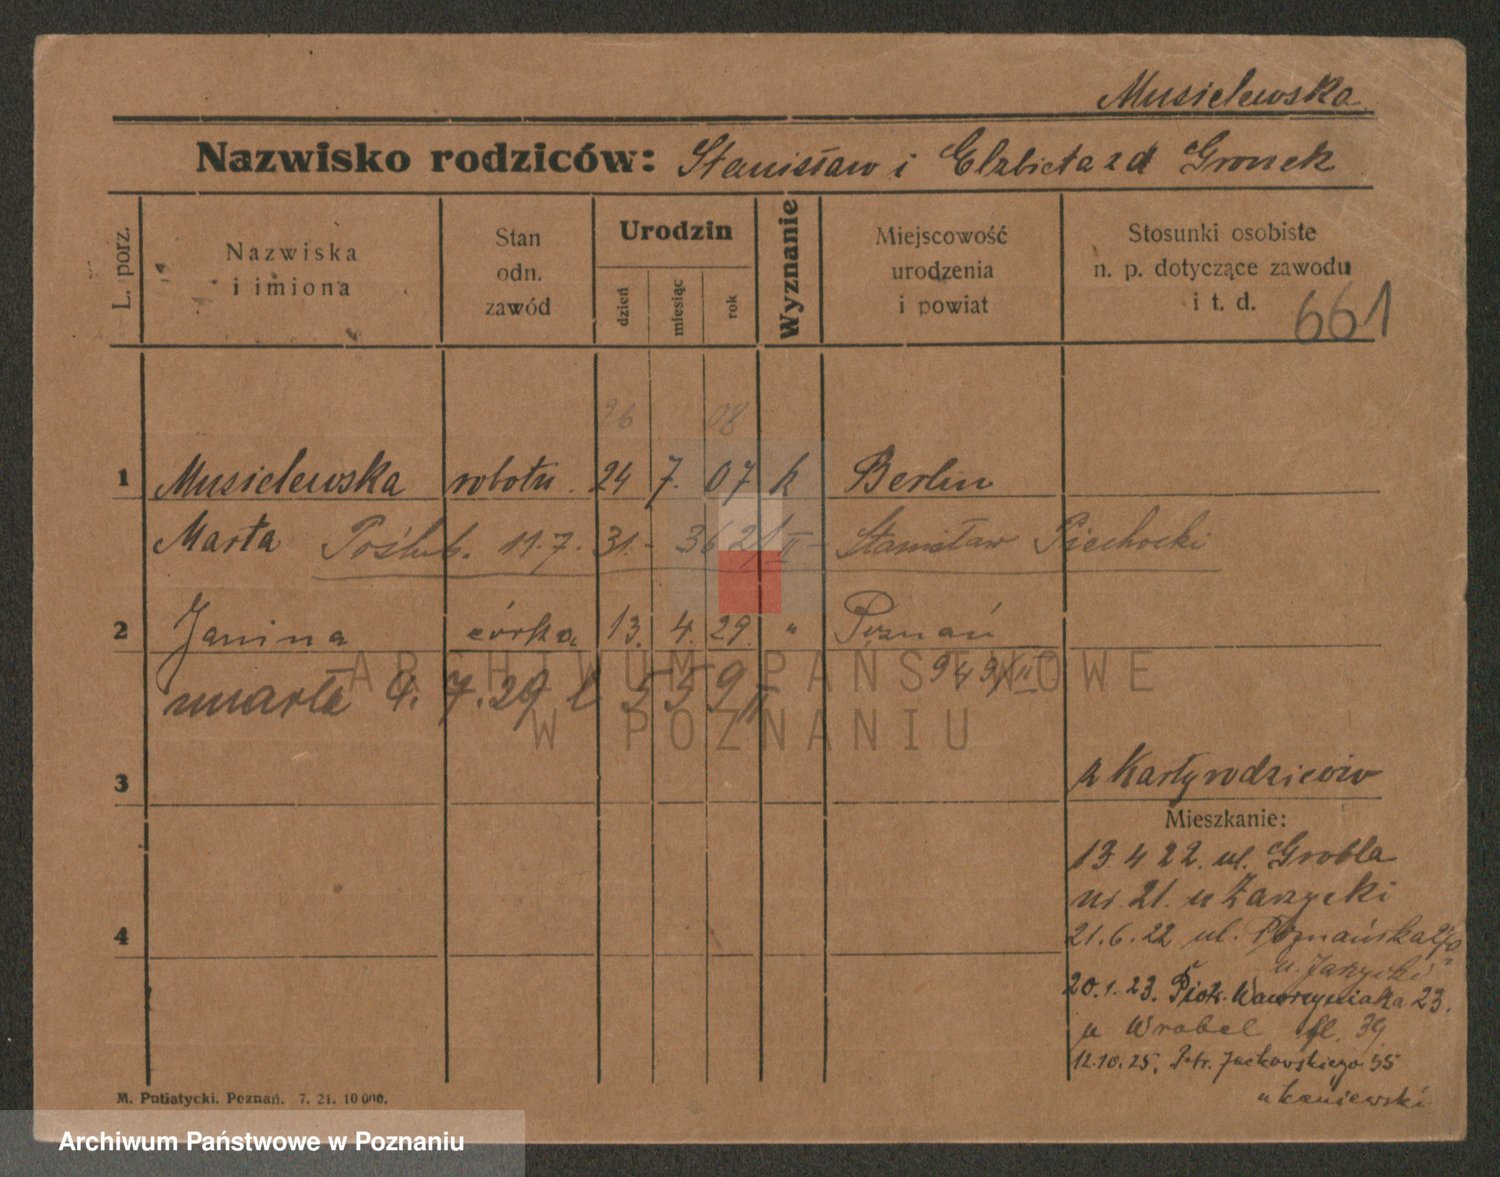 Musielewska
Nazwisko rodziców: Stanisław i Elzbieta z d Gronek
L. porz.
Nazwiska
i imiona
Stan
odn.
zawód
Urodzin
dzień
miesiąc
rok
Wyznanie
Miejscowość
urodzenia
i powiat
Stosunki osobiste
n. p. dotyczące zawodu
i t. d.
661
26 08
1 Musielewska robotn. 24 7. 07 k Berlin
Marta Poślub. 11.7.31.- 362/II - Stanisław Piechocki
2 Janina córka 13. 4. 29. " Poznań
949/II
umarła 4. 7. 29 559/II
3
z Karty rodziców
Mieszkanie:
13 4 22. ul. Grobla
nr. 21. u Zarzycki
4
21.6.22 ul. Poznańska
u. Jarzycki
20.1.23. Piotr. Wawrzyniaka 23.
u Wrobel fl. 39
12.10.25. Ptr. Jackowskiego 35
u Kaniewski
M. Putiatycki. Poznań. 7. 21. 10 000.
ARCHIWUM PAŃSTWOWE
W POZNANIU
Archiwum Państwowe w Poznaniu